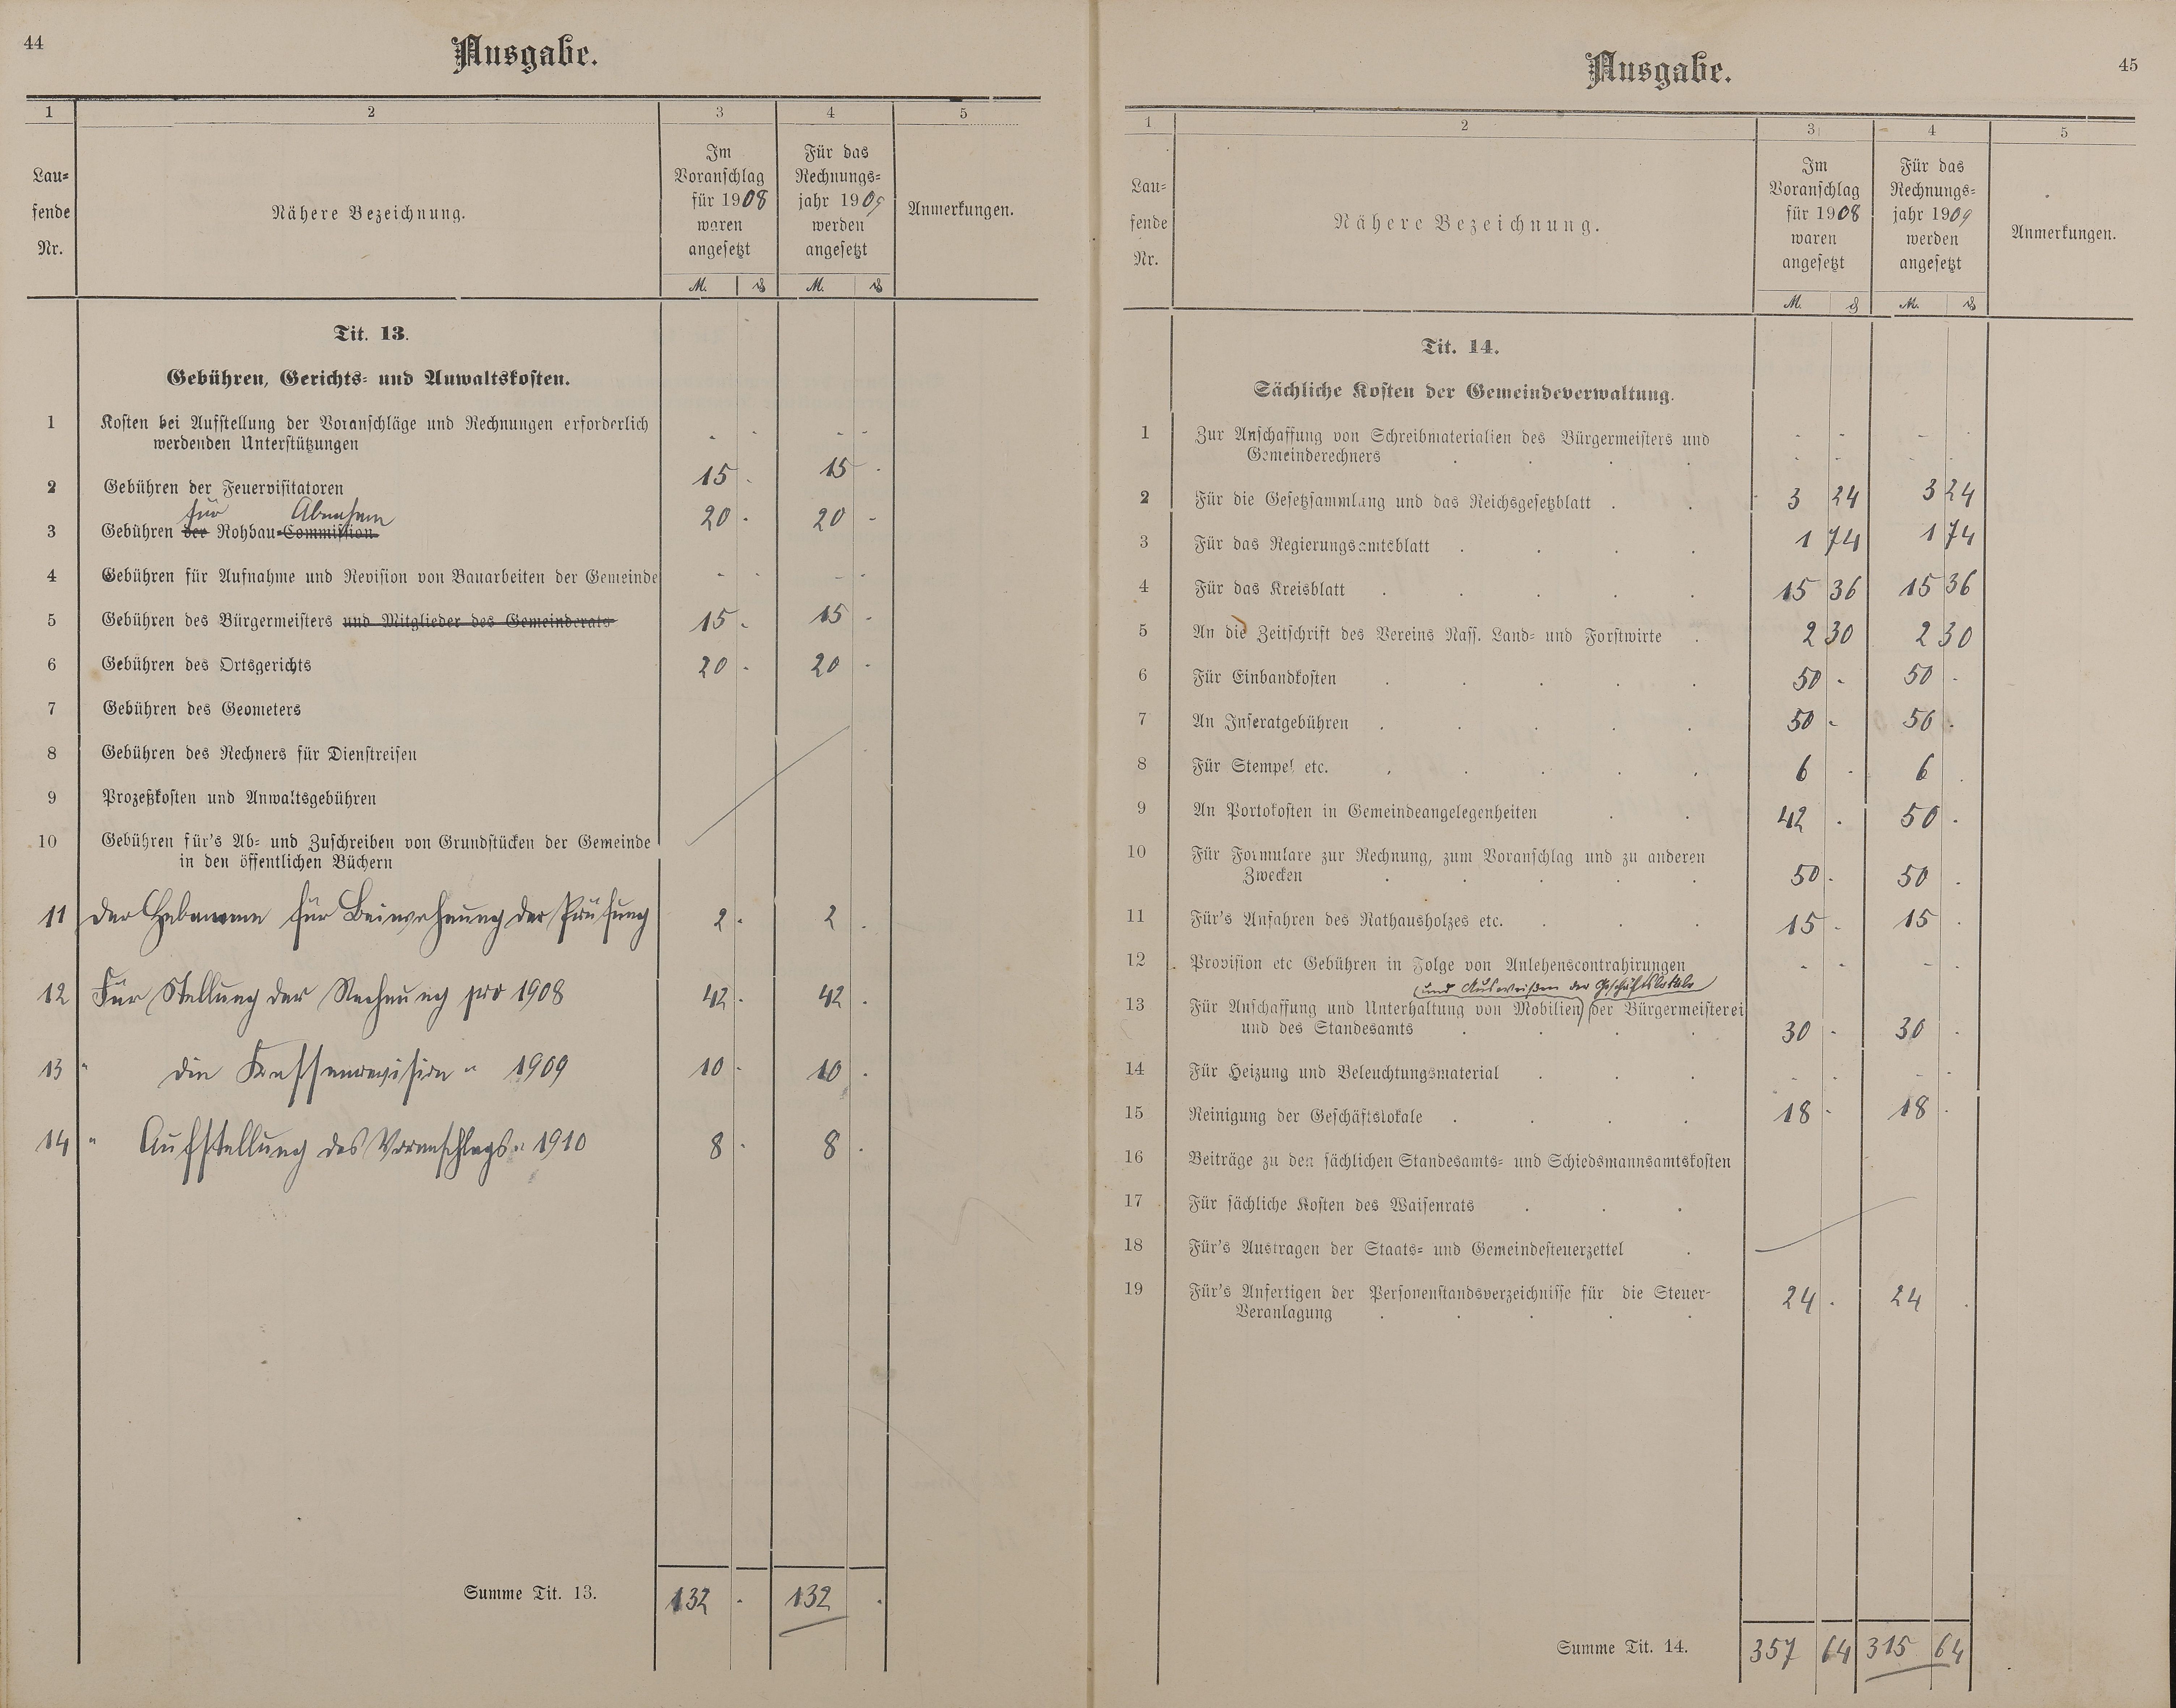 44
Ausgabe.
1 2 3 4 5
Lau-
fende
Nr.
Nähere Bezeichnung.
Im
Voranschlag
für 1908
waren
angesetzt
Für das
Rechnungs-
jahr 1909
werden
angesetzt
Anmerkungen.
M. ₰ M. ₰
Tit. 13.
Gebühren, Gerichts- und Anwaltskosten.
1 Kosten bei Aufstellung der Voranschläge und Rechnungen erforderlich - - - -
werdenden Unterstützungen
2 Gebühren der Feuervisitatoren 15 - 15 -
für Abnahme
3 Gebühren der Rohbau-Commission 20 - 20 -
4 Gebühren für Aufnahme und Revision von Bauarbeiten der Gemeinde - - - -
5 Gebühren des Bürgermeisters und Mitglieder des Gemeinderats 15 - 15 -
6 Gebühren des Ortsgerichts 20 - 20 -
7 Gebühren des Geometers
8 Gebühren des Rechners für Dienstreisen
9 Prozeßkosten und Anwaltsgebühren
10 Gebühren für's Ab- und Zuschreiben von Grundstücken der Gemeinde
in den öffentlichen Büchern
11 der Hebamme für Beiwohnung der Prüfung 2 - 2 -
12 Für Stellung der Rechnung pro 1908 42 - 42 -
13 " die Kassenrevision " 1909 10 - 10 -
14 " Aufstellung des Voranschlags " 1910 8 - 8 -
Summe Tit. 13. 132 - 132 -
Ausgabe.
45
1 2 3 4 5
Lau-
fende
Nr.
Nähere Bezeichnung.
Im
Voranschlag
für 1908
waren
angesetzt
Für das
Rechnungs-
jahr 1909
werden
angesetzt
Anmerkungen.
M. ₰ M. ₰
Tit. 14.
Sächliche Kosten der Gemeindeverwaltung.
1 Zur Anschaffung von Schreibmaterialien des Bürgermeisters und - - - -
Gemeinderechners . . . . - - - -
2 Für die Gesetzsammlung und das Reichsgesetzblatt . . 3 24 3 24
3 Für das Regierungsamtsblatt . . . . 1 74 1 74
4 Für das Kreisblatt . . . . . 15 36 15 36
5 An die Zeitschrift des Vereins Nass. Land- und Forstwirte . 2 30 2 30
6 Für Einbandkosten . . . . . 50 - 50 -
7 An Inseratgebühren . . . . . 50 - 50 -
8 Für Stempel etc. . . . . . 6 - 6 -
9 An Portokosten in Gemeindeangelegenheiten . . 42 - 50 -
10 Für Formulare zur Rechnung, zum Voranschlag und zu anderen
Zwecken . . . . . 50 - 50 -
11 Für's Anfahren des Rathausholzes etc. . . . 15 - 15 -
12 Provision etc Gebühren in Folge von Anlehenscontrahirungen - - - -
(und Ausweißen der Geschäftslokale
13 Für Anschaffung und Unterhaltung von Mobilien) (der Bürgermeisterei
und des Standesamts . . . . 30 - 30 -
14 Für Heizung und Beleuchtungsmaterial . . . - - - -
15 Reinigung der Geschäftslokale . . . . 18 - 18 -
16 Beiträge zu den sächlichen Standesamts- und Schiedsmannsamtskosten
17 Für sächliche Kosten des Waisenrats . . .
18 Für's Austragen der Staats- und Gemeindesteuerzettel .
19 Für's Anfertigen der Personenstandsverzeichnisse für die Steuer-
Veranlagung . . . . . 24 - 24 -
Summe Tit. 14. 357 64 315 64